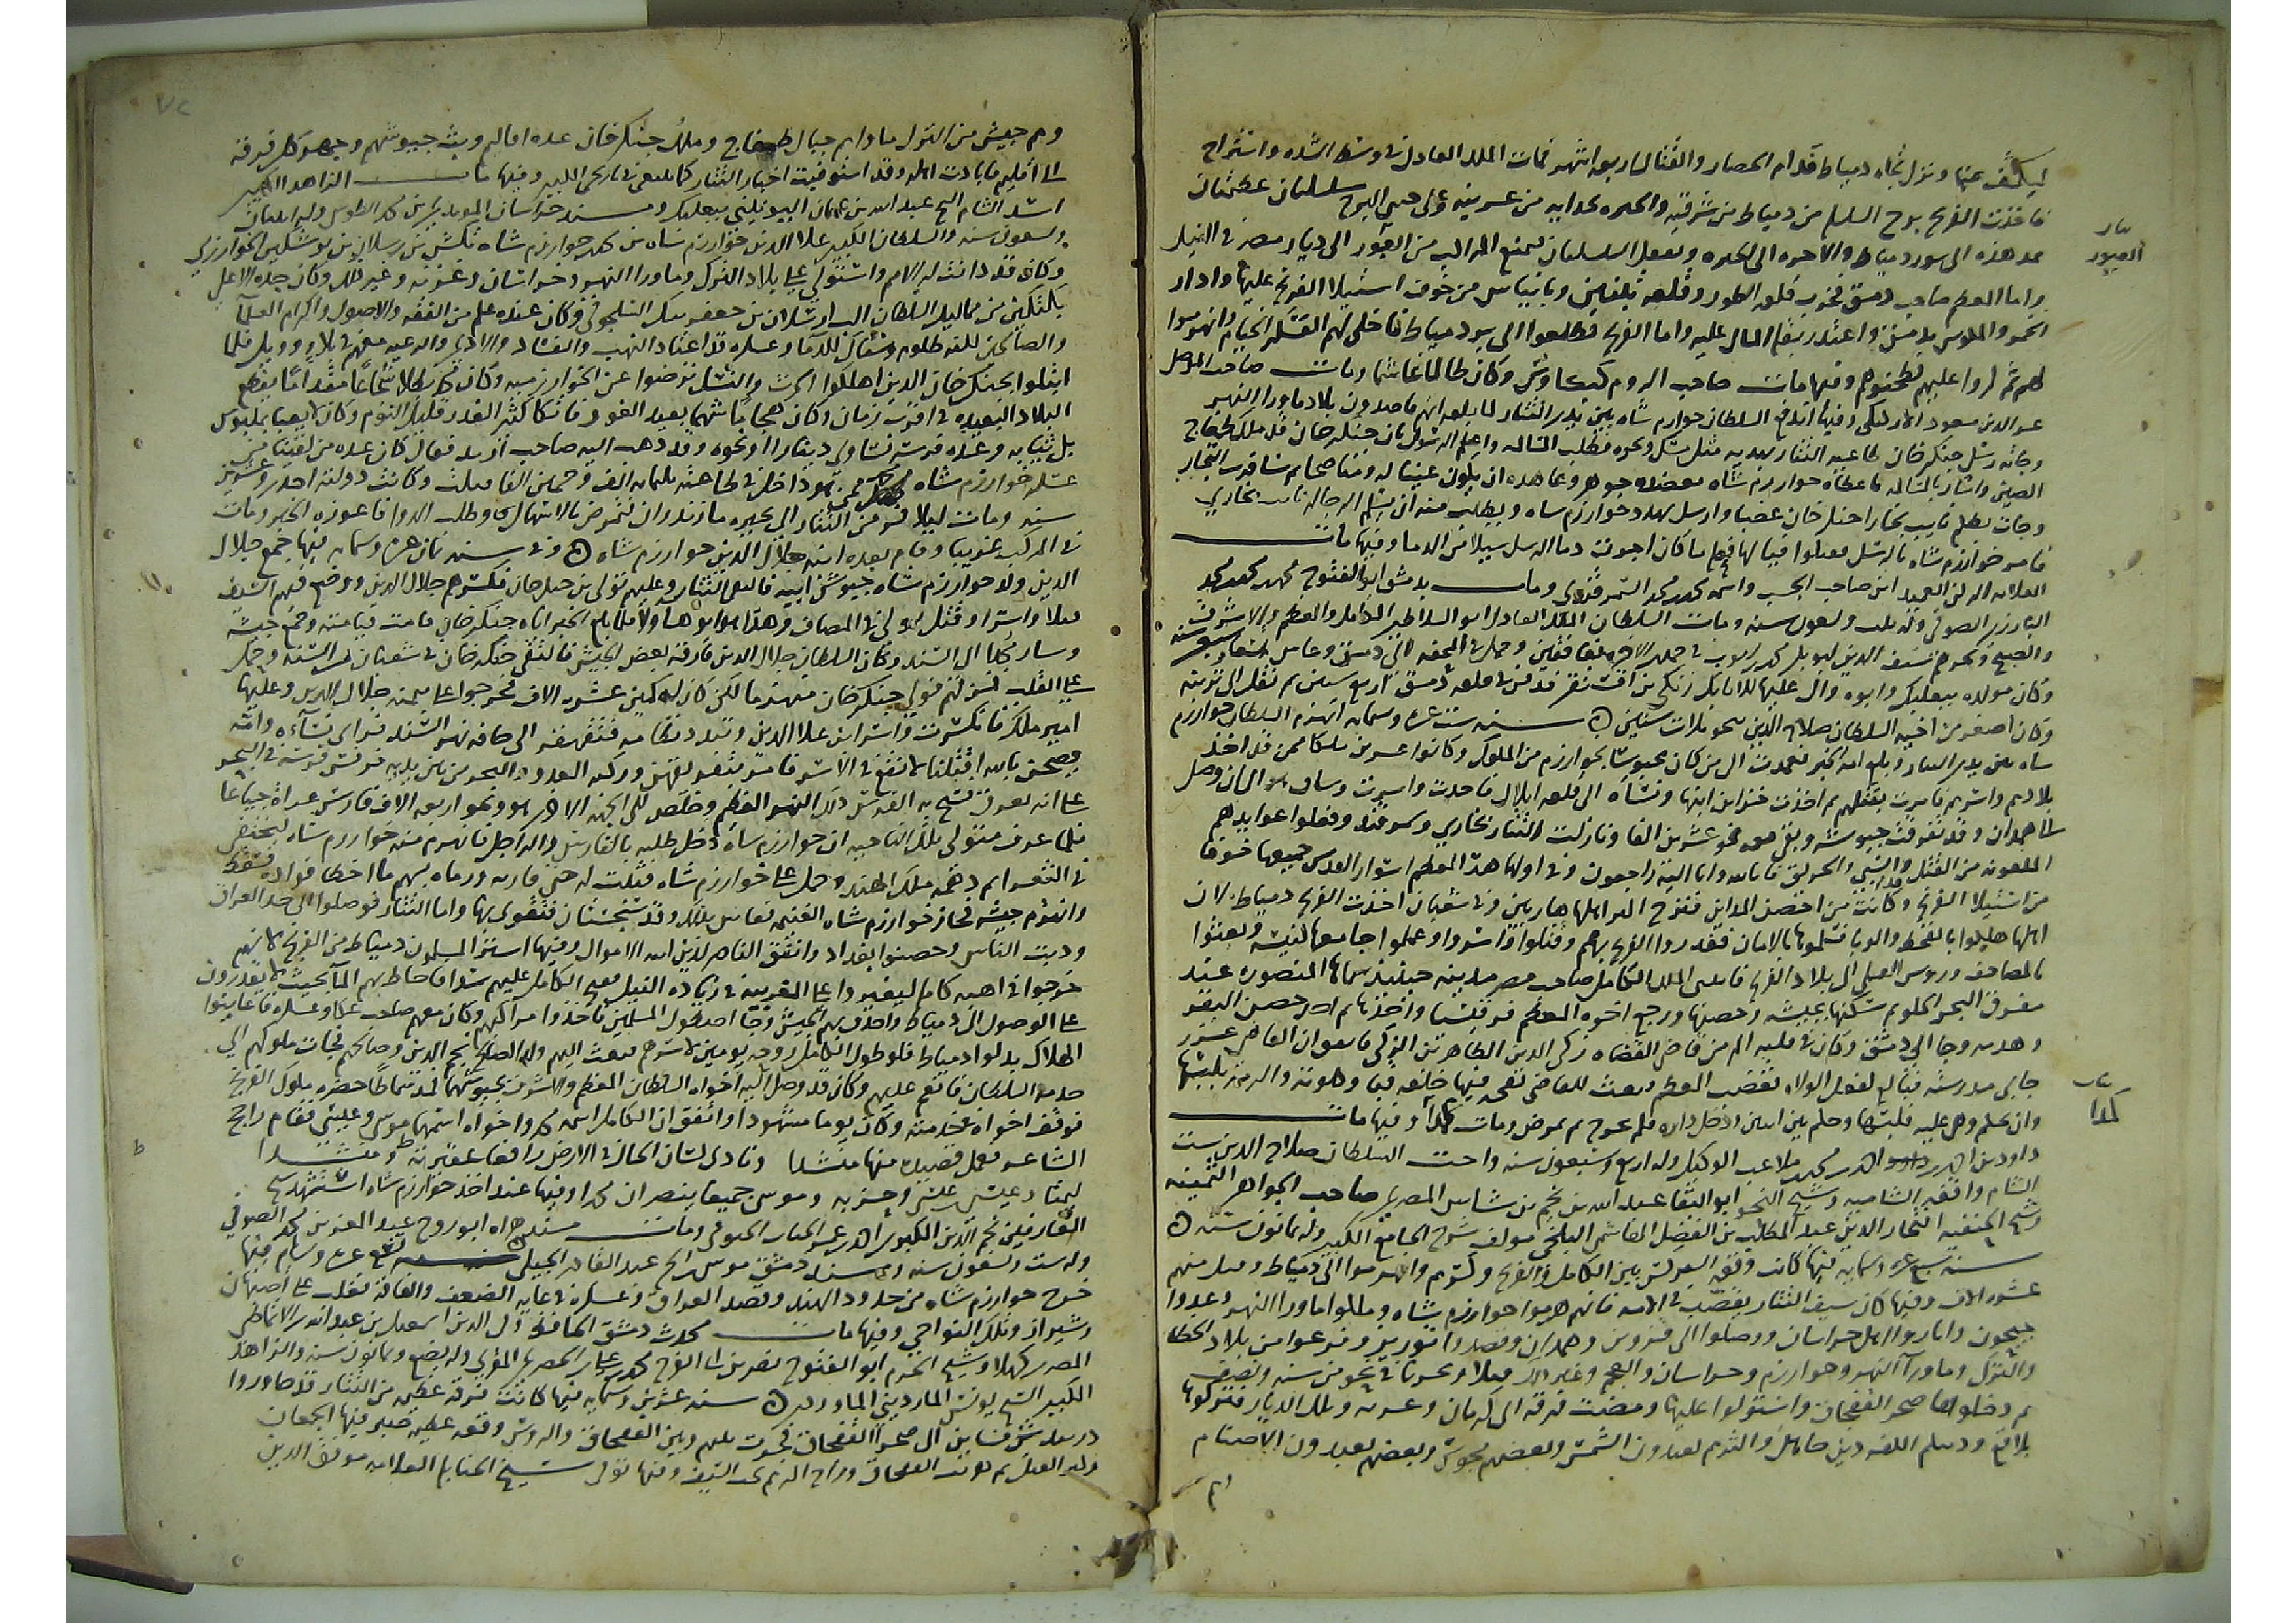 ليكشف عنها ونزل تجاه دمياط فدام الحصار والقتال اربعة اشهر فمات الملك العادل في وسط الشدة واستراح
فاخذت الفرنج برج السلسلة من دمياط من شرقيه والجيزه بحدايه من غربيه وعلى البرج سلسلتان عظيمتان
تمد هذه الى سور دمياط والاخره الى الجيزه وبعمل السلسلتان تمنع المراكب من العبور الى ديار مصر في النيل
واما المعظم صاحب دمشق فخرب قلعه الطور وقلعه تبنين وبانياس من خوف استيلا الفرنج عليها وادار
الخمر والمكوس بدمشق واعتذر بقلة المال عليه واما الفرنج فطلعوا الى بر دمياط فاخلى لهم العسكر الخيام وانهزموا
لهم ثم كروا عليهم فطحنوهم وفيها مات صاحب الروم كيكاوس وكان ظالما غاشما ومات صاحب الموصل
عز الدين مسعود الاتابكي وفيها اندفع السلطان خوارزم شاه بين يدي التتار لما بلغه انهم قاصدون بلاد ماورا النهر
وجاته رسل جنكزخان طاغيه التتار بهديه مثل مسك ونحوه فطلب المسالمه واعلم الرسول بان جنكزخان قد ملك طمغاج
الصين واشار بالمسالمه فاعطاه خوارزم شاه معضده جوهر وعاهده ان يكون عينا له ومناصحا ثم سافرت التجار
وجات بظلم نايب بخارا جنكزخان غضبا وارسل يهدد خوارزم شاه ويطلب منه ان يسلم الرجاله نايب بخاري
فامر خوارزم شاه بالرسل فقتلوا فيالها فعله ما كان اجوفت دما الرسل سيلا من الدما وفيها مات
العلامه الركن العميدي ابن صاحب الجست واسمه محمد بن محمد السمرقندي ومات بدمشق ابو الفتوح محمد بن محمد بن محمد
البكري الصوفي وله ثلث وتسعون سنه ومات السلطان الملك العادل ابو السلاطين الكامل والمعظم والاشرف
والصالح وغيرهم سيف الدين ابو بكر محمد بن ايوب في جمادى الاخره بعالقين وحمل في المحفه الى دمشق وعاش بضعا وسبعين سنه
وكان مولده ببعلبك وابوه وال عليها للاتابك زنكي بن اق سنقر فدفن في قلعه دمشق اربع سنين ثم نقل الى تربته
وكان اصغر من اخيه السلطان صلاح الدين بنحو ثلاث سنين سنه ست عشره وستمايه انهزم السلطان خوارزم
شاه بين يدي التتار وبلغ امه الخبر فعمدت الى من كان محبوسا بخوارزم من الملوك وكانوا عشرين ملكا ممن قد اخذ
بلادهم واسرهم فامرت بقتلهم ثم اخذت خزاين ابنها ونساه الى قلعه ايلال فاخذت واسرت وسار هو الى ان وصل
الى همدان وقد تفرقت جيوشه وبقي معه نحو عشرين الفا ونازلت التتار بخاري وسمرقند وفعلوا عوايدهم
الملعونه من القتل والسبي والحريق فانا لله وانا اليه راجعون وفي اولها هدم المعظم اسوار القدس جميعها خوفا
من استيلا الفرنج وكانت من احصن المداين فنزح اكثر اهلها هاربين وفي شعبان اخذت الفرنج دمياط لان
اهلها هلكوا بالقحط والوبا فسلموها بالامان فغدروا الفرنج بهم وقتلوا واسروا وعملوا جامعها كنيسه وبعثوا
بالمصاحف وروس القتلى الى بلاد الفرنج فابتنى الملك الكامل صاحب مصر مدينه حينيذ سماها المنصوره عند
مفرق البحر الحلو ثم سكنها بجيشه وحصنها ورجع اخوه المعظم فر قلتسا واخذها ثم اخذ حصن النفر
وهدمه وجا الى دمشق وكان في قلبه الم من قاضي القضاه زكي الدين الطاهر بن الزكي فاتفق ان القاضي عزر
جابي مدرسه فبالغ كفعل الولاه فغضب المعظم وبعث للقاضي بقجه فيها خلعه قبا وكلوته والزمه بلبسها
وان يحكم وهي عليه فلبسها وحكم بين اثنين ودخل داره فلم يخرج ثم مرض ومات كمدا وفيها مات
داود بن احمد بن محمد بن ملاعب الوكيل وله اربع وسبعون سنه واخت السلطان صلاح الدين ست
الشام واقفه الشاميه وشيخ النحو ابو البقا عبد الله بن نجم بن شاس المصري صاحب الجواهر الثمينه
وشيخ الحنفيه افتخار الدين عبد المطلب بن الفضل الهاشمي البلخي مولف شرح الجامع الكبير وله ثمانون سنه
سنه سبع عشره وستمايه فيها كانت وقعه البرلس بين الكامل والفرنج وكسرهم وانهزموا الى دمياط وقتل منهم
عشره الاف وفيها كان سيف التتار يقضب في الامه فانهم هزموا خوارزم شاه وملكوا ماورا النهر وعبروا
جيحون وابادوا اهل خراسان ووصلوا الى قزوين وهمدان وقصدوا توريز وفرغوا من بلاد الخطا
والترك وماورا النهر وخوارزم وخراسان والعجم وغير ذلك قتلا وتخريبا في نحو من سنه ونصف
ثم دخلوا الى صحرا القفجاق واستولوا عليها ومضت فرقه الى كرمان وغزنه وتلك الديار فتركوها
بلاقع ودينهم اللغه دين جاهل واكثرهم يعبدون الشمس وبعضهم مجوس وبعضهم يعبدون الاصنام
وهم
بيان
العبور
مات
كمدا
٧٢
وهم جيش من الترك ماواهم جبال طمغاج وملك جنكزخان عده اقاليم وبث جيوشهم وجهز كل فرقه
الى اقليم فابادت اهله وقد استوفيت اخبار التتار كما ينبغي في تاريخي الكبير وفيها مات الزاهد الكبير
اسد الشام الشيخ عبد الله بن عثمان اليونيني ببعلبك ومسند خراسان المويد بن محمد الطوسي وله اثنتان
وتسعون سنه والسلطان الكبير علا الدين خوارزم شاه بن محمد خوارزم شاه تكش بن ارسلان بن نوشتكين الخوارزمي
وكان قد دانت له الامم واستولى على بلاد الترك وماورا النهر وخراسان وغزنه وغير ذلك وكان جده الاعلى
بلكتكين من مماليك السلطان الب ارسلان بن جعفر بيك السلجوقي وكان عنده علم من الفقه والاصول واكرام العلما
والصالحين لكنه ظلوم وسفاك للدما وعسكره قد اعتاد النهب والفساد والاذى والرعيه معهم في بلا وويل فلما
ابتلوا بجنكزخان الذين اهلكوا الحرث والنسل ترضوا عن الخوارزميه وكان محمد بطلا شجاعا مقداما يقطع
البلاد البعيده في اقرب زمان وكان هجاما شهما بعيد الغور فاتكا كثير الغدر قليل النوم وكان لا يعبا بملبوس
بل ثيابه وعده فرسه تساوى دينارا او نحوه وقد ذهب اليه صاحب اربل فقال كان عده من لقينا من
عسكر خوارزم شاه ممن هو داخل في طاعته ثلثمايه الف وخمسين الفا وملك وكانت دولته احدى وعشرين
سنه ومات ليلا فر من التتار الى بحيره مازندران فتمرض بالاسهال وطلب الدوا فاعوزه الخبز ومات
في المركب غريبا وقام بعده ابنه جلال الدين خوارزم شاه وفي سنه ثمان عشره وستمايه فيها جمع جلال
الدين ولد خوارزم شاه جيوش ابيه فالتقى التتار وعليهم تولى بن جنكزخان فكسرهم جلال الدين ووضع فيهم السيف
قتلا واسرا وقتل تولى في المصاف وهذا هو ابو هلاوو فلما بلغ الخبر اباه جنكزخان قامت قيامته وجمع جيشه
وسار مجدا الى السند وكان السلطان جلال الدين فارقه بعض الجيش فالتقى جنكزخان في شعبان من السنه وحمل
على القلب فمزقهم فولى جنكزخان منهزما لكن كان له كمين عشره الاف فخرجوا على ميمنه جلال الدين وعليها
امير ملك فانكسرت واسر ابن علا الدين وتبدد نظامه فتقهقر الى حافه نهر السند فراى نساءه وامه
يصحن بالله اقتلنا لا نقع في الاسر فامر بتغريقهن وركب العدو والبحر من بين يديه فرفس فرسه في البحر
على انه يغرق فسبح به الفرس ذلك النهر العظيم وخلص الى الجهه الاخرى هو ونحو اربعه الاف فارس عراه جياعا
فلما عرف متولى تلك الناحيه ان خوارزم شاه دخل طلبه بالفارس والراجل فانهزم منه خوارزم شاه ليختفي
في الشعرا ثم دهمه ملك الهند وحمل على خوارزم شاه فثبت له حتى قاربه ورماه بسهم ما اخطا فواده فسقط
وانهزم جيشه فحاز خوارزم شاه الغنيمه فعاش بذلك وقصد سجستان فتقوى بها واما التتار فوصلوا الى حد العراق
ودبت الناس وحصنوا بغداد وانفق الناصر لدين الله الاموال وفيها استرد المسلمون دمياط من الفرنج لانهم
خرجوا في اهبه كامله ليغيروا على القريه في زياده النيل ففتح الكامل عليهم سدا فاحاط بهم الما بحيث لا يقدرون
على الوصول الى دمياط واحدق بهم الجيش وجا اصطول المسلمين فاخذوا مراكبهم وكان معهم صاحب عكا وعسكره فعاينوا
الهلاك بذلوا دمياط فلو طول الكامل روحه يومين لاسرهم فبعث اليهم ولده الصالح نجم الدين وصالحهم فجات ملوكهم الى
خدمه السلطان فانعم عليهم وكان قد وصل اليه اخواه السلطان المعظم والاشرف بجيوشهما فمد سماطا حضره ملوك الفرنج
فوقف اخواه في خدمته وكان يوما مشهودا واتفق ان الكامل اسمه محمد واخواه اسمهما موسى وعيسى فقام راجح
الشاعر فعمل قصيده منها منشدا ونادى لسان الحال في الارض رافعا عقيرته ومنشدا
اعباد عيسى ان عيسى وحزبه وموسى جميعا ينصران محمدا وفيها عند اخذ خوارزم شاه استشهد شيخ
العارفين نجم الدين الكبرى احمد بن عمر الخبوقي الصوفي ومات مسند هراه ابو روح عبد المعز بن محمد الصوفي
وله ست وتسعون سنه ومسند دمشق موسى بن الشيخ عبد القادر الجيلي سنه تسع عشره وستمايه فيها
خرج خوارزم شاه من حدود الهند وقصد العراق وعسكره في غايه الضعف والفاقه تغلب على اصبهان
وشيراز وتلك النواحي وفيها مات محدث دمشق الحافظ زكي الدين اسمعيل بن عبد الله بن الانماطي
المصري كهلا وشيخ الحرم ابو الفتوح نصر بن ابي الفرج محمد بن علي الحصري المقري وله بضع وثمانون سنه والزاهد
الكبير الشيخ يونس المارديني سنه عشرين وستمايه فيها كانت فرقه عظيمه من التتار قد جاوزوا
دربند شروان الى صحرا القفجاق فجرت بينهم وبين القفجاق والروس وقعه عظيمه صبر فيها الجمعان
وكثر القتل ثم هربت القفجاق وراح اكثرهم تحت السيف وفيها توفى شيخ الحنابله العلامه موفق الدين